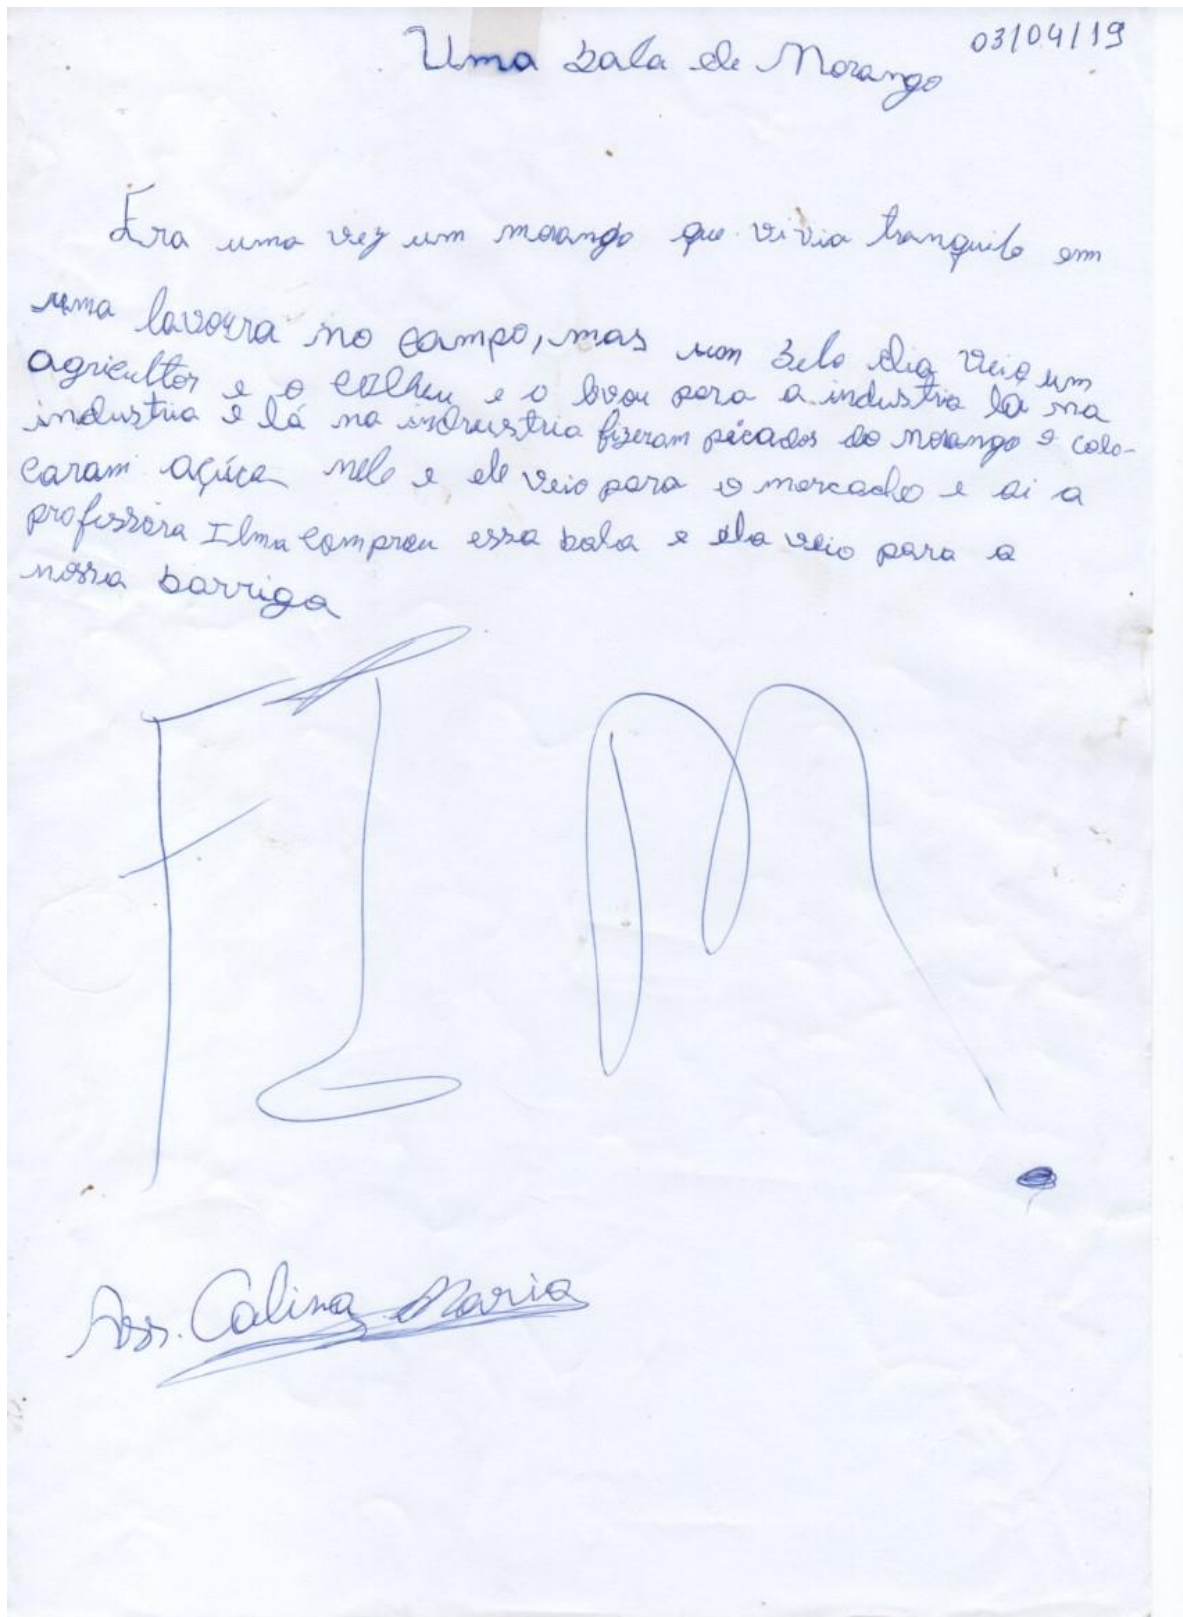 03/04/19
Uma bala de Morango
Era uma vez um morango que vivia tranquilo em
uma lavoura no campo, mas um belo dia veio um
agricultor e o colheu e o levou para a industria lá na
industria e lá na indrustria fizeram picados do morango e colo-
caram açúca nele e ele veio para o mercado e ai a
professora Ilma comprou essa bala e ela veio para a
nossa barriga
FIM
Ass. Calina Maria